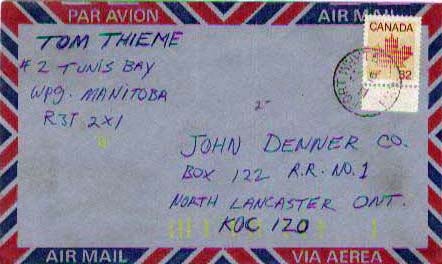 PAR AVION
AIR MAIL
TOM THIEME
#2 TUNIS BAY
WPG. MANITOBA
R3T 2X1
CANADA
32
JOHN DENNER CO.
BOX 122 R.R. NO.1
NORTH LANCASTER ONT.
K0C 1Z0
AIR MAIL
VIA AEREA